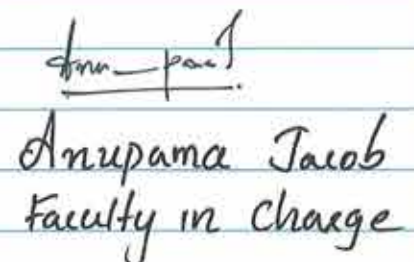 Anupama Jacob
Faculty in charge